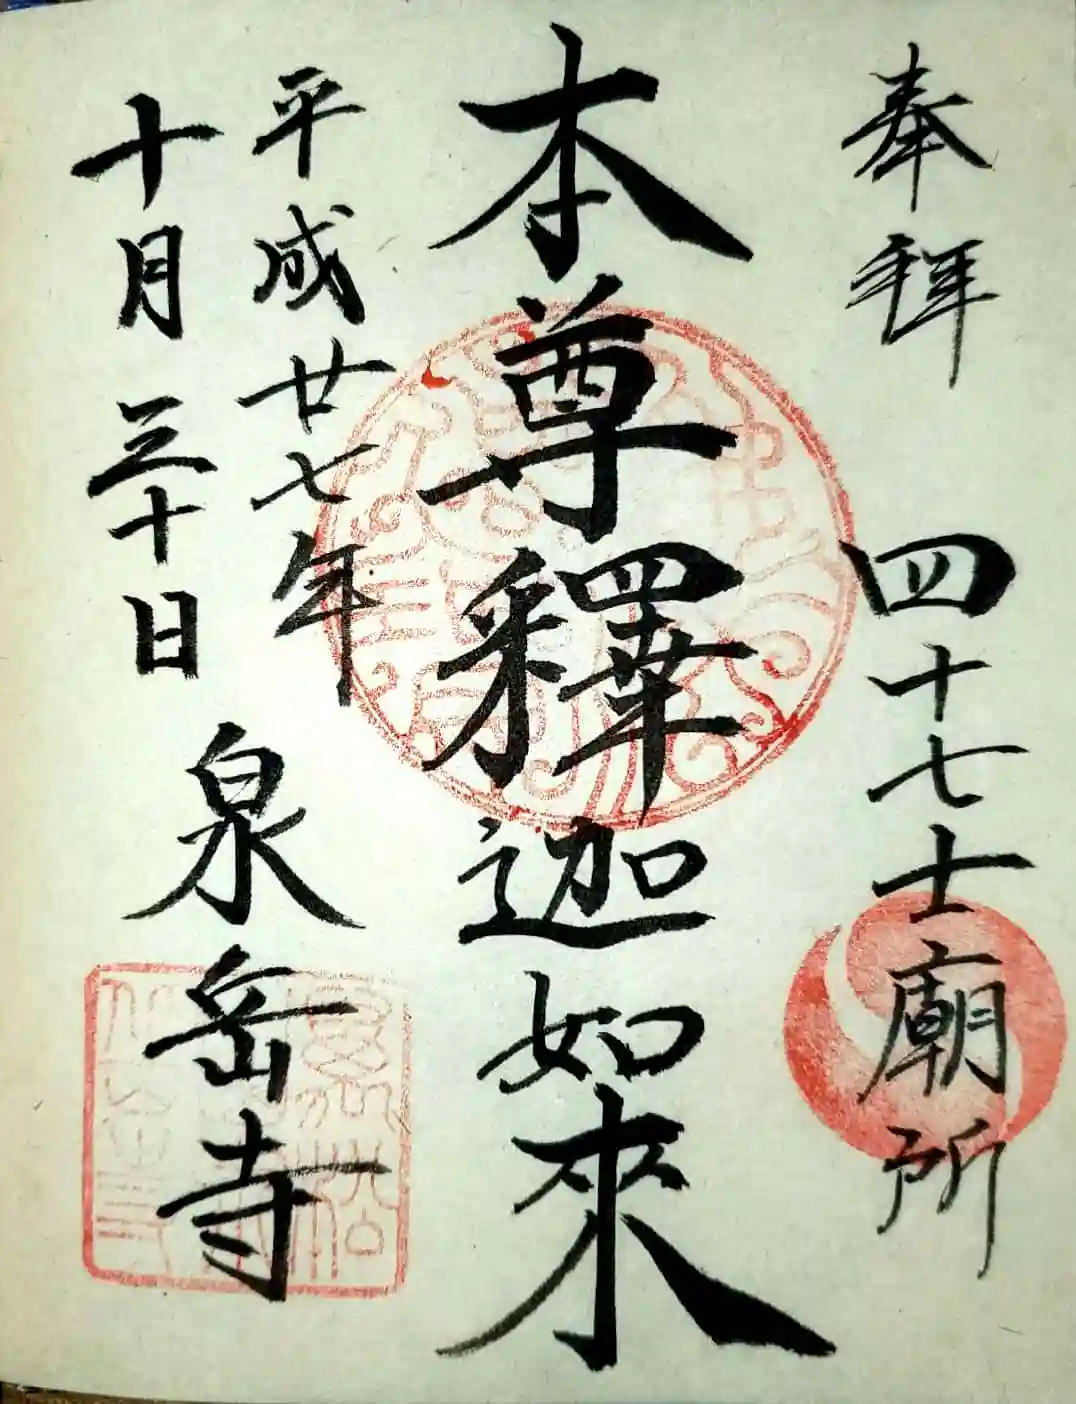 奉拝 四十七士廟所
本尊釋迦如來
平成廿七年
十月三十日 泉岳寺